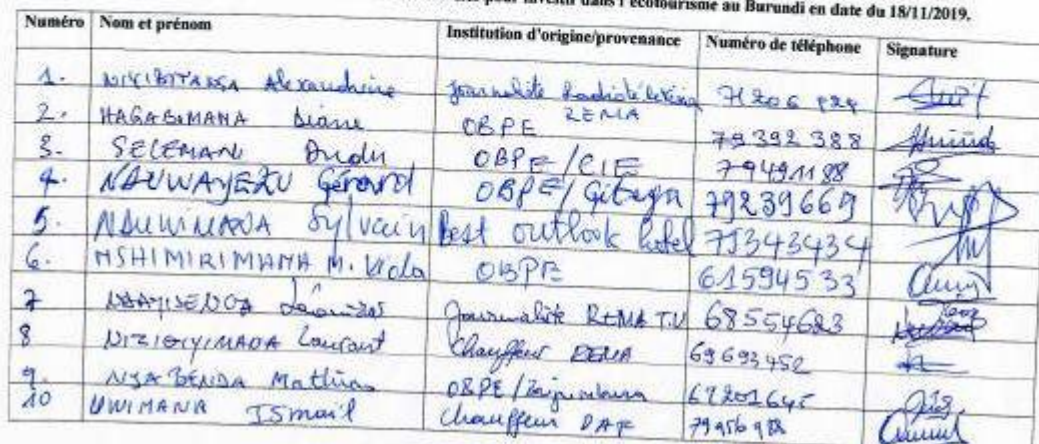 pour investir dans l'écotourisme au Burundi en date du 18/11/2019.
Numéro Nom et prénom Institution d'origine/provenance Numéro de téléphone Signature
1. Alexandrine Journaliste 71206
2. HAGABIMANA Diane OBPE 79 392 388
3. SELEMANI Dudu OBPE/CIE 79491188
4. NDUWAYEZU Gérard OBPE/Gitega 79239669
5. NDUWIMANA Sylvain Best outlook hotel 75343434
6. NSHIMIRIMANA M. Viola OBPE 61594533
7 Journaliste REMA T.V 68554683
8 NIZIGIYIMANA Laurant Chauffeur REMA 69693452
9. NSABENDA Mathias OBPE/Bujumbura 67201645
10 UWIMANA ISmail Chauffeur 79956988